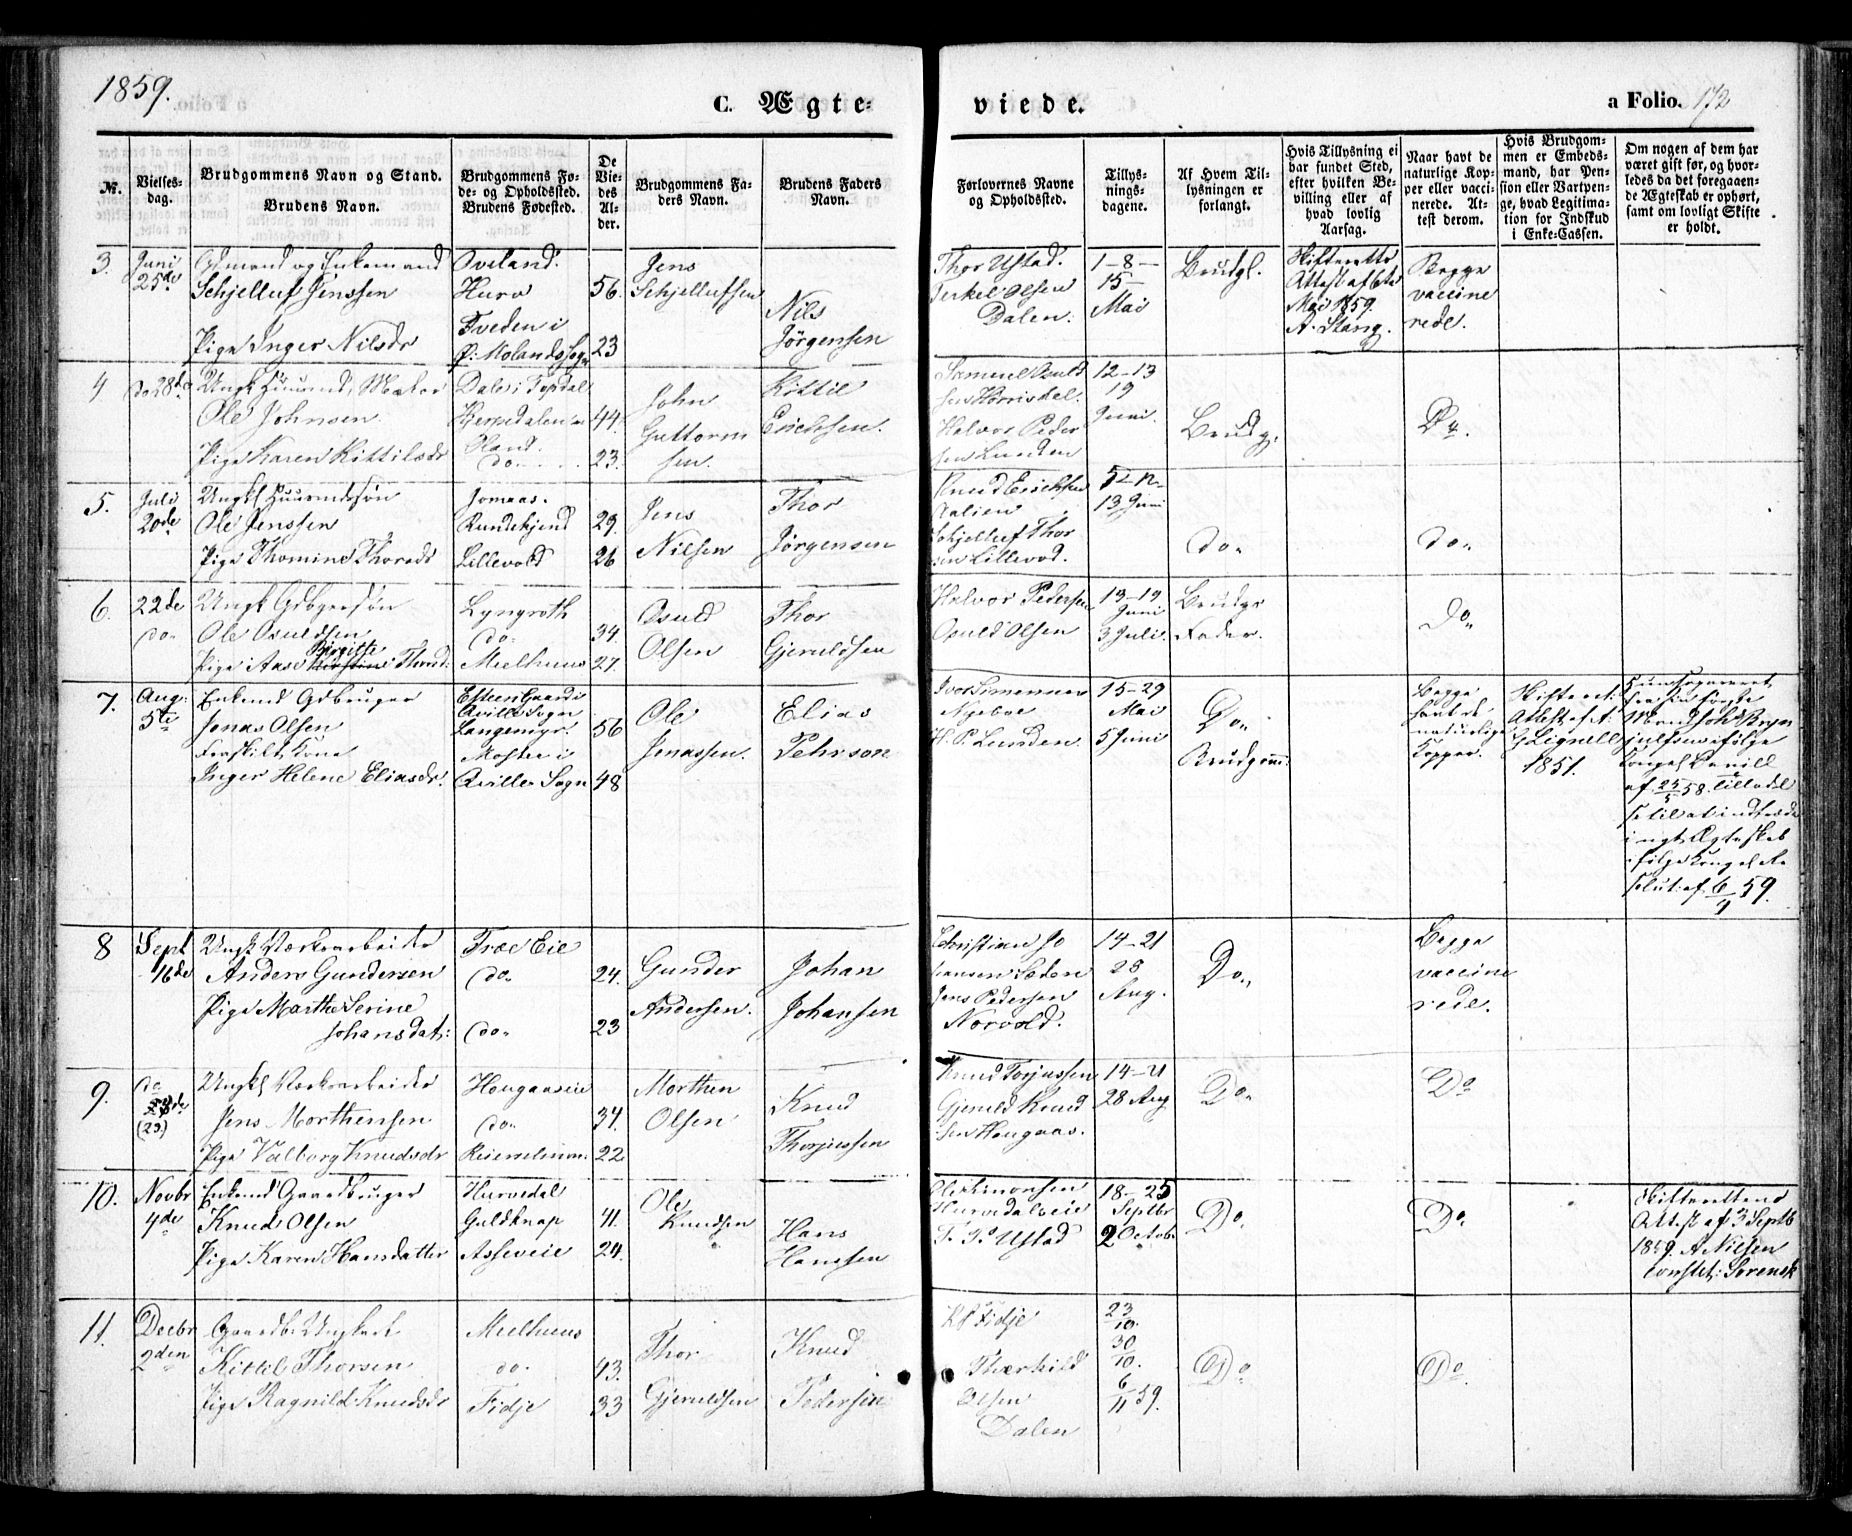 1859.
C. Ægte-
viede.
a Folio. 172
No.
Vielses-
dag.
Brudgommens Navn og Stand.
Brudens Navn.
Brudgommens Fø-
de- og Opholdssted.
Brudens Fødested.
De
Vie-
des
Al-
der.
Brudgommens Fa-
ders Navn.
Brudens Faders
Navn.
Forlovernes Navne
og Opholdssted.
Tillys-
nings-
dagene.
Af Hvem Til-
lysningen er
forlangt.
Hvis Tillysning ei
har fundet Sted,
efter hvilken Be-
villing eller af
hvad lovlig
Aarsag.
Naar havt de
naturlige Kop-
per eller vacci-
nerede. At-
test derom.
Hvis Brudgom-
men er Embeds-
mand, har Pen-
sion eller Vartpen-
ge, hvad Legitima-
tion for Indskud
i Enke-Cassen.
Om nogen af dem har
været gift før, og hvor-
ledes da det foregaaen-
de Ægteskab er ophørt,
samt om lovligt Skifte
er holdt.
3.
Juni
25de
Gdmand og Enkemand
Schjelluf Jenssen
Pige Inger Nilsdr
Oveland.
Hurv
Tveden i
Ø. Molands Sogn
56.
23
Jens
Schjellufsen
Nils
Jørgensen
Thor Ustad.
Terkel Olsen
Dalen.
1-8-
15-
Mai
Brudgl.
Skifteretts
Attest af 6te
Mai 1859.
A. Stang.
Begge
vaccine
rede.
4
do 28de
Ungk Huusmd, Maler
Ole Johnsen
Pige Karen Kittilsdr
Dale i Topdal
Øland.
do
44.
23.
John
Guttorm
sen.
Kittil
Erichsen.
Samuel Osuld
sen Hørrisdal.
Halvor Peder
sen Lunden
12-13
19
Juni
Brudg.
Do.
5.
Juli
20de
Ungkl Huusmdssøn
Ole Jenssen
Pige Thomine Thorsdr
Jomaas.
Rundekjend
Lillevold
29.
26
Jens
Nilsen
Thor
Jørgensen
Knud Erichsen
Schjelluf Thor
sen Lillevold.
5-12-
13 Juni
do.
do.
6.
22de
do.
Ungk Gdbgersøn
Ole Osuldsen
Pige Aase Birgitte Thorsd:
Lyngroth
do.
Mielhuus
34.
27.
Osuld
Olsen
Thor
Gjeruldsen
Halvor Pedersen
Osuld Olsen
13-19
Juni
3 Juli.
Brudgs
Fader.
Do.
7.
Aug:
5te
Enkemd Gdbruger
Jonas Olsen
Fraskilt Kone
Inger Helene Eliasdr.
Langemyr.
Mostee i
Sogn
56
48
Ole
Jonassen.
Elias
Pehrson
Iver Simonsen
Nyeboe
H. P. Lunden
15-29
Mai
5 Juni
Do.
Brudgom:
Begge
havt de
naturlige
Kopper.
Skifteret:
Attest af A:
G Lignell
1851.
fra sin første
Mand Joh: Bryn
julfsen ifølge
Kongel Bevill
af 25/5 58. Tilladel
se til at indtræde
i nyt Ægteskab
ifølge Kongel Re
solut: af 6/7 59.
8
Sept
16de
Ungk Værksarbeider
Anders Gundersen
Pige Marthe Serine
Johansdat:
Træe Eie
do.
do.
24.
23
Gunder
Andersen.
Johan
Johansen
Christian Jo
hansen Sæden
Jens Pedersen
Norvold.
14-21
28
Aug.
Do.
Begge
vaccine
rede.
9.
do
(23)
Ungkl Værksarbeider
Jens Morthensen
Pige Valborg Knudsdr
Hougaaseie
do.
34.
22
Morthen
Olsen
Knud
Thorjussen
Knud Torjussen
Gjeruld Knud
sen Hougaas.
14-21
28 Aug
Do.
Do
10.
Novbr
4de
Enkemd Gaardbruger
Knud Olsen
Pige Karen Hansdatter
Hurvedal
Guldknap
Asseveie
41.
24.
Ole
Knudsen
Hans
Hanssen
Ole Simonsen
Hurvedalseie
T. P. Ustad
18-25
Septbr
2 Octob.
Do.
Do.
Skifterettens
Attest af 3 Septb
1859. A Nilsen
constit: Sorensk
11.
Decbr
2den
Gaardb. Ungkarl
Kittil Thorsen
Pige Ragnild Knudsdr
Mielhuus
do.
Fidje
43.
33
Thor
Gjeruldsen
Knud
Pedersen
Fidje
Olsen
Dalen
23/10.
30/10.
6/11 59.
Do
Do.